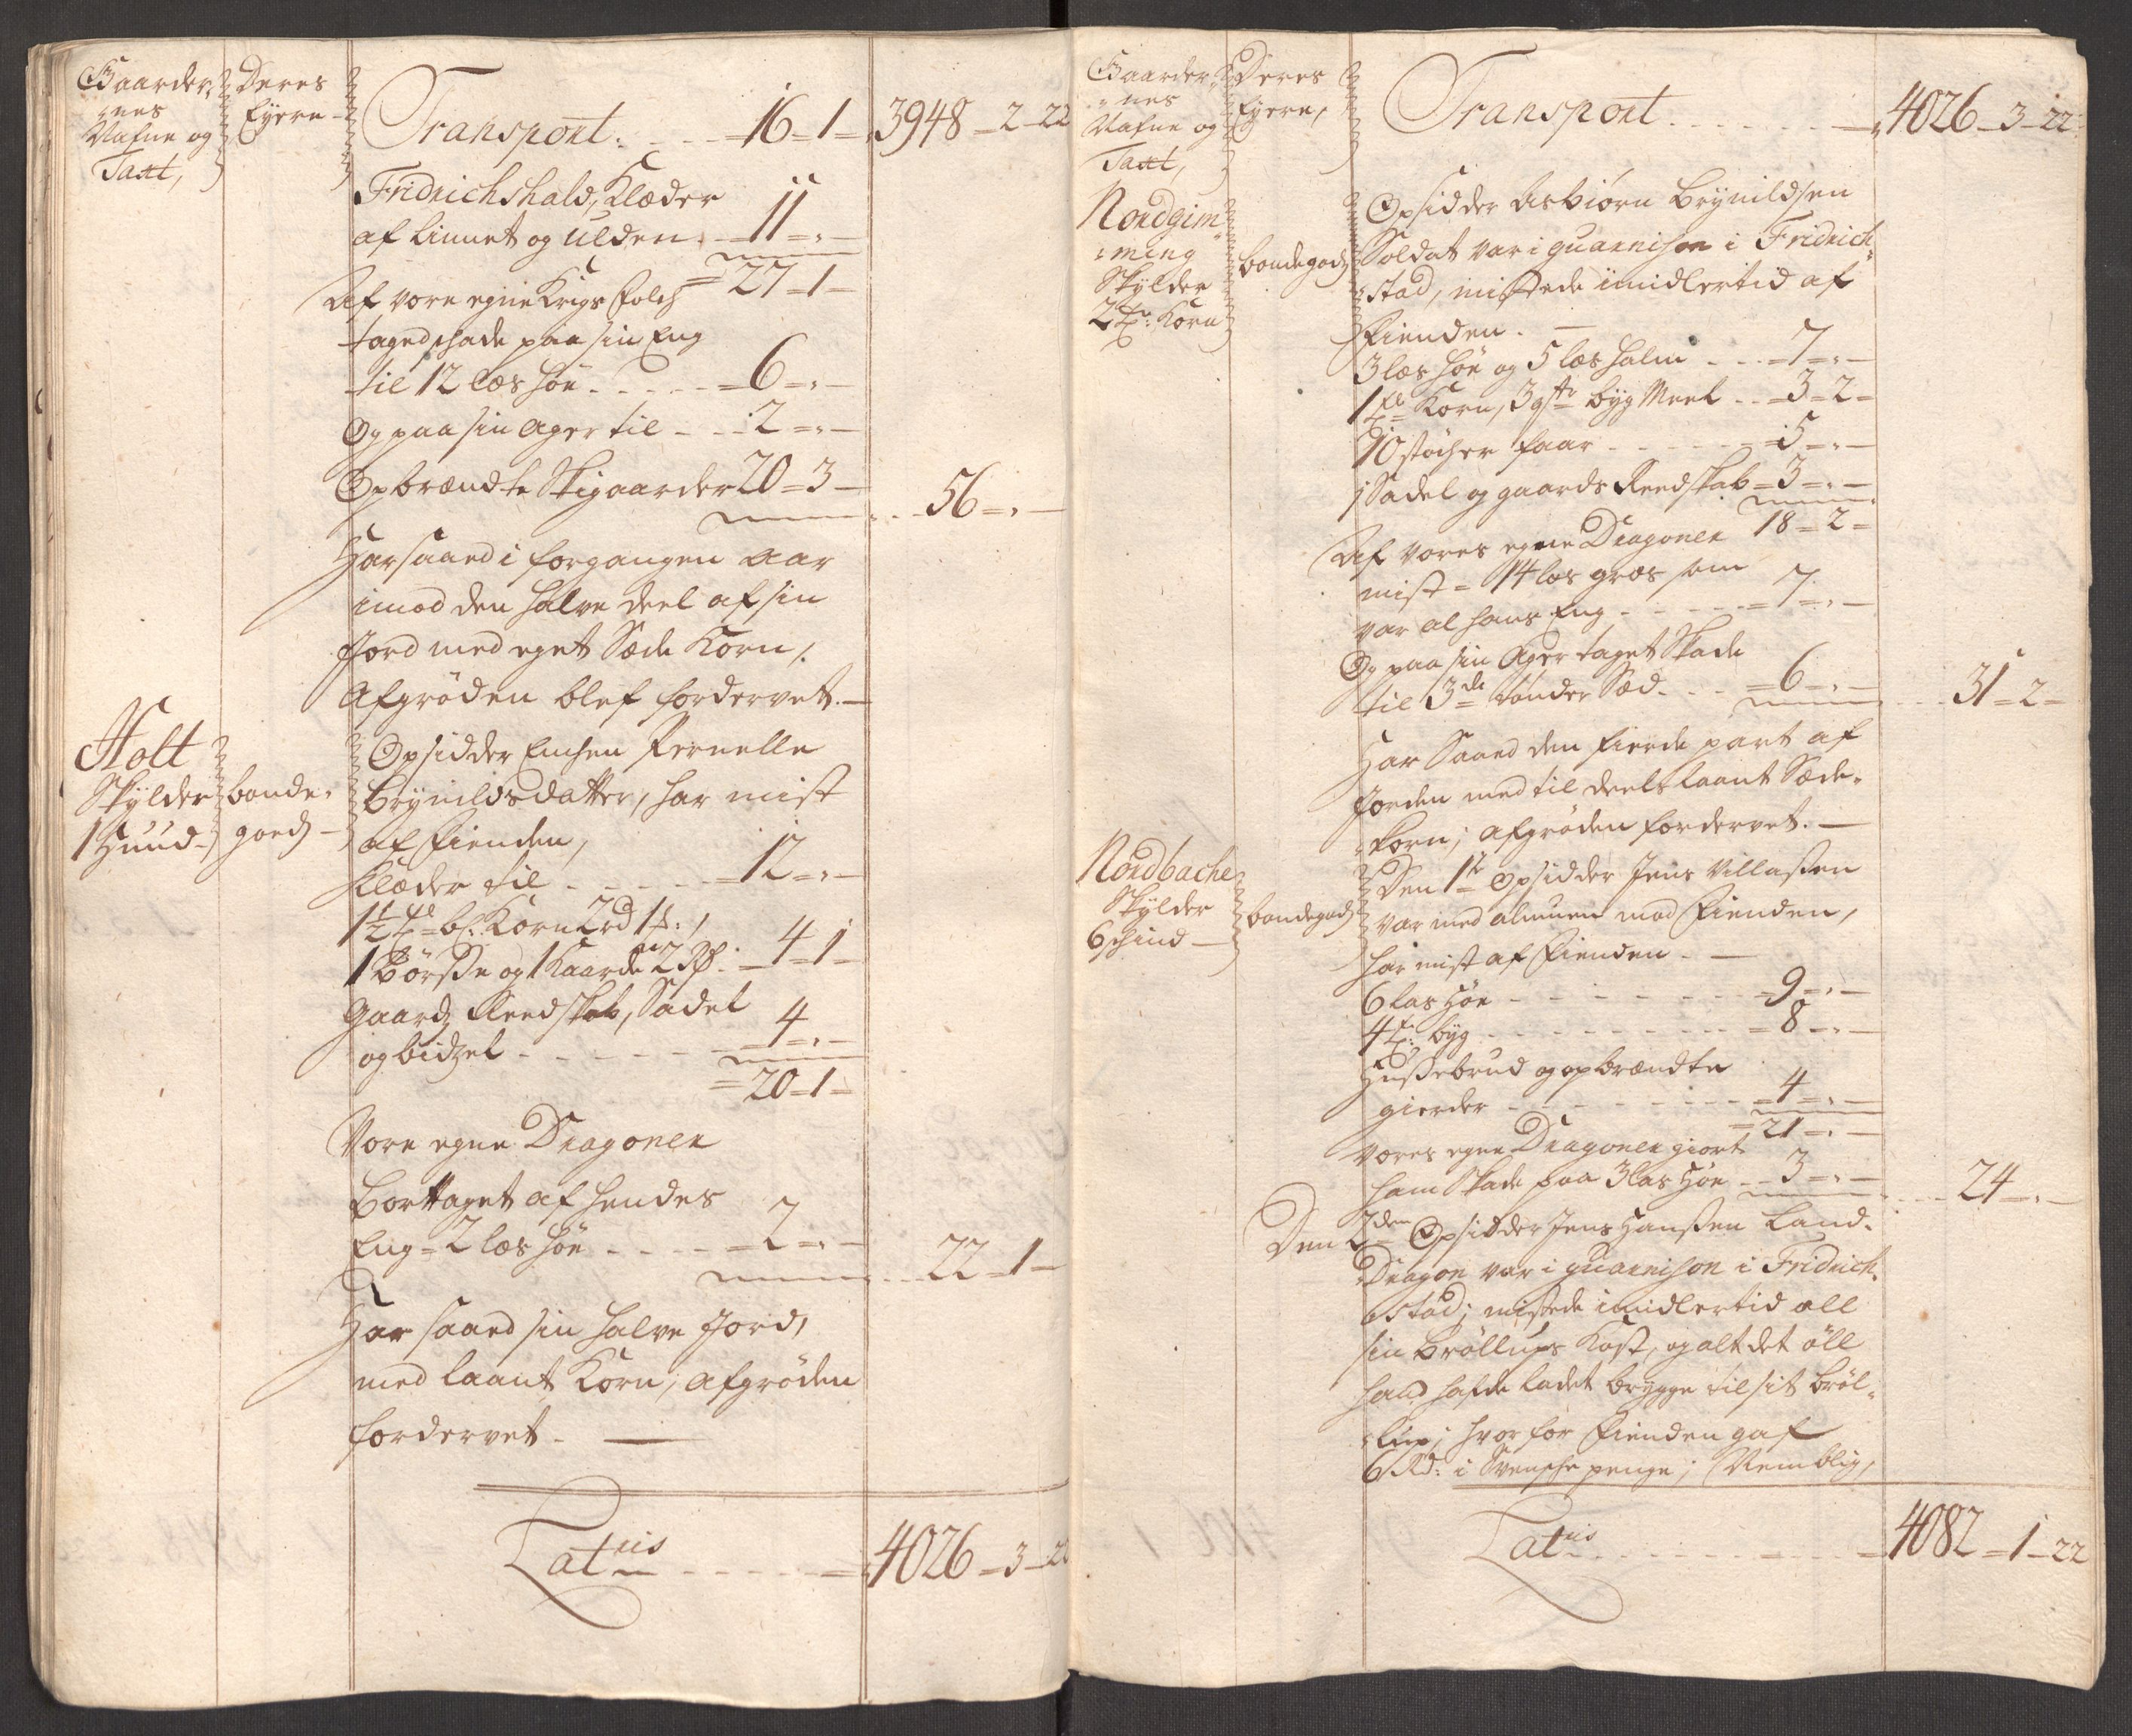 Gaarder-
-nes
Nafne og
Taxt,
Deres
Eÿere
Transport. - - - 16 - 1 - 3948 - 2 - 22
Fridrichshald, Klæder
af linnet og ulden - 11 - " -
= 27 - 1 -
Af vore egne Krigs folch
taged schade paa sin Eng
til 12 læs höe - - - - 6 - " -
Og paa sin ager til - - 2 - " -
Opbrændte Skigaarder 20 - 3 -
56 - " -
Har saaed i forgangen aar
imod den halve deel af sin
Jord med eget Sæde Korn,
Afgröden blef fordervet. -
Holt
Skÿlder
1 Huud -
bonde-
goedz -
Opsidder Enchen Pernelle
Brÿnildsdatter, har mist
af Fienden,
Klæder til - - - - - 12 - " -
1½ Tde bl. Korn 2 rd 1 s: ,
1 Börsse og 1 Kaarde 2 Rd: - 4 - 1 -
Gaardz Reedskab, Sadel
og bidzel - - - - - 4 - " -
= 20 - 1 -
Vore egne Dragoner
Borttaget af hendes
Eng - 2 læs höe - - - - 2 - " -
22 - 1 -
Har saaed sin halve Jord,
med laant Korn, afgröden
fordervet - -
Latris - - - - - 4026 - 3 - 22
Gaarder-
-nes
Nafne og
Taxt,
Deres
Eÿere,
Transport - - - - - 4026 - 3 - 22
Nordgim-
-ming
Skÿlder
2 Tr: Korn
bondegodz
Opsidder Asbiörn Brÿnildsen
Soldat var i quarnison i Fridrich-
-stad, mistede imidlertid af
Fienden. -
3 læs höe og 5 læs halm - - 7 - " -
1 Td Korn, 3 qtr bÿg Meel - - 3 - 2 -
10 stöcher faar - - - - - 5 - " -
1 Sadel og gaards Reedskab - 3 - " -
18 - 2 -
Af vores egne Dragoner
mist - 14 læs græs som
var al hans Eng - - - - 7 - " -
Og paa sin Ager taget Skade
til 3de tönder Sæd - - - 6 - " -
31 - 2 -
Har Saaed den fierde part af
Jorden med til deels laant Sæde-
-korn; afgröden fordervet. -
Nordbache
Skÿlder
6 schind -
bondegodz
Den 1te Opsidder Jens Villassen
var med almuen mod Fienden,
har mist af Fienden - -
6 læs Höe - - - - - - 9 - " -
4 Tr: bÿg - - - - - - 8 - " -
Hussebrud og opbrændte
gierder - - - - - - 4 - " -
= 21 - " -
Vores egne Dragoner giort
ham Skade paa 3 læs Höe - 3 - " -
24 - " -
Den 2den Opsidder Jens Hanssen Land-
-Dragon var i guarnison i Fridrich-
-stad; mistede imidlertid all
sin Bröllups Kost, og alt det öll
hand hafde ladet brygge til sit bröl-
-lup; hvorfor Fienden gaf
6 Rd: i Svensche penge; Nemblig,
Latris - - - - - 4082 - 1 - 22